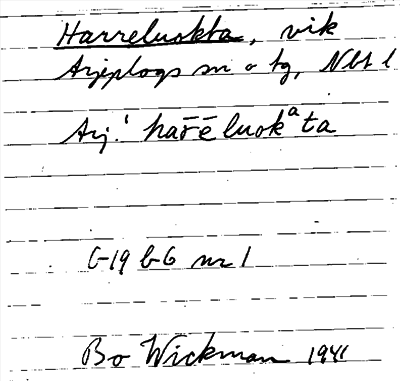 Harreluokta, vik
Arjeplogs sn o tg, Nbt l
Arj.: har̄ēluokᵃta
G-19 b-G nr 1
Bo Wickman 1941